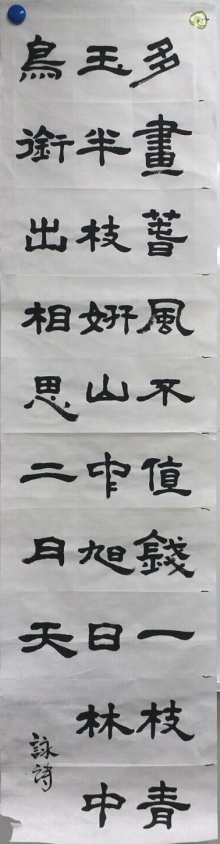 多畫春風不值錢一枝青
玉半枝妍山中旭日林中
鳥銜出相思二月天
詠詩